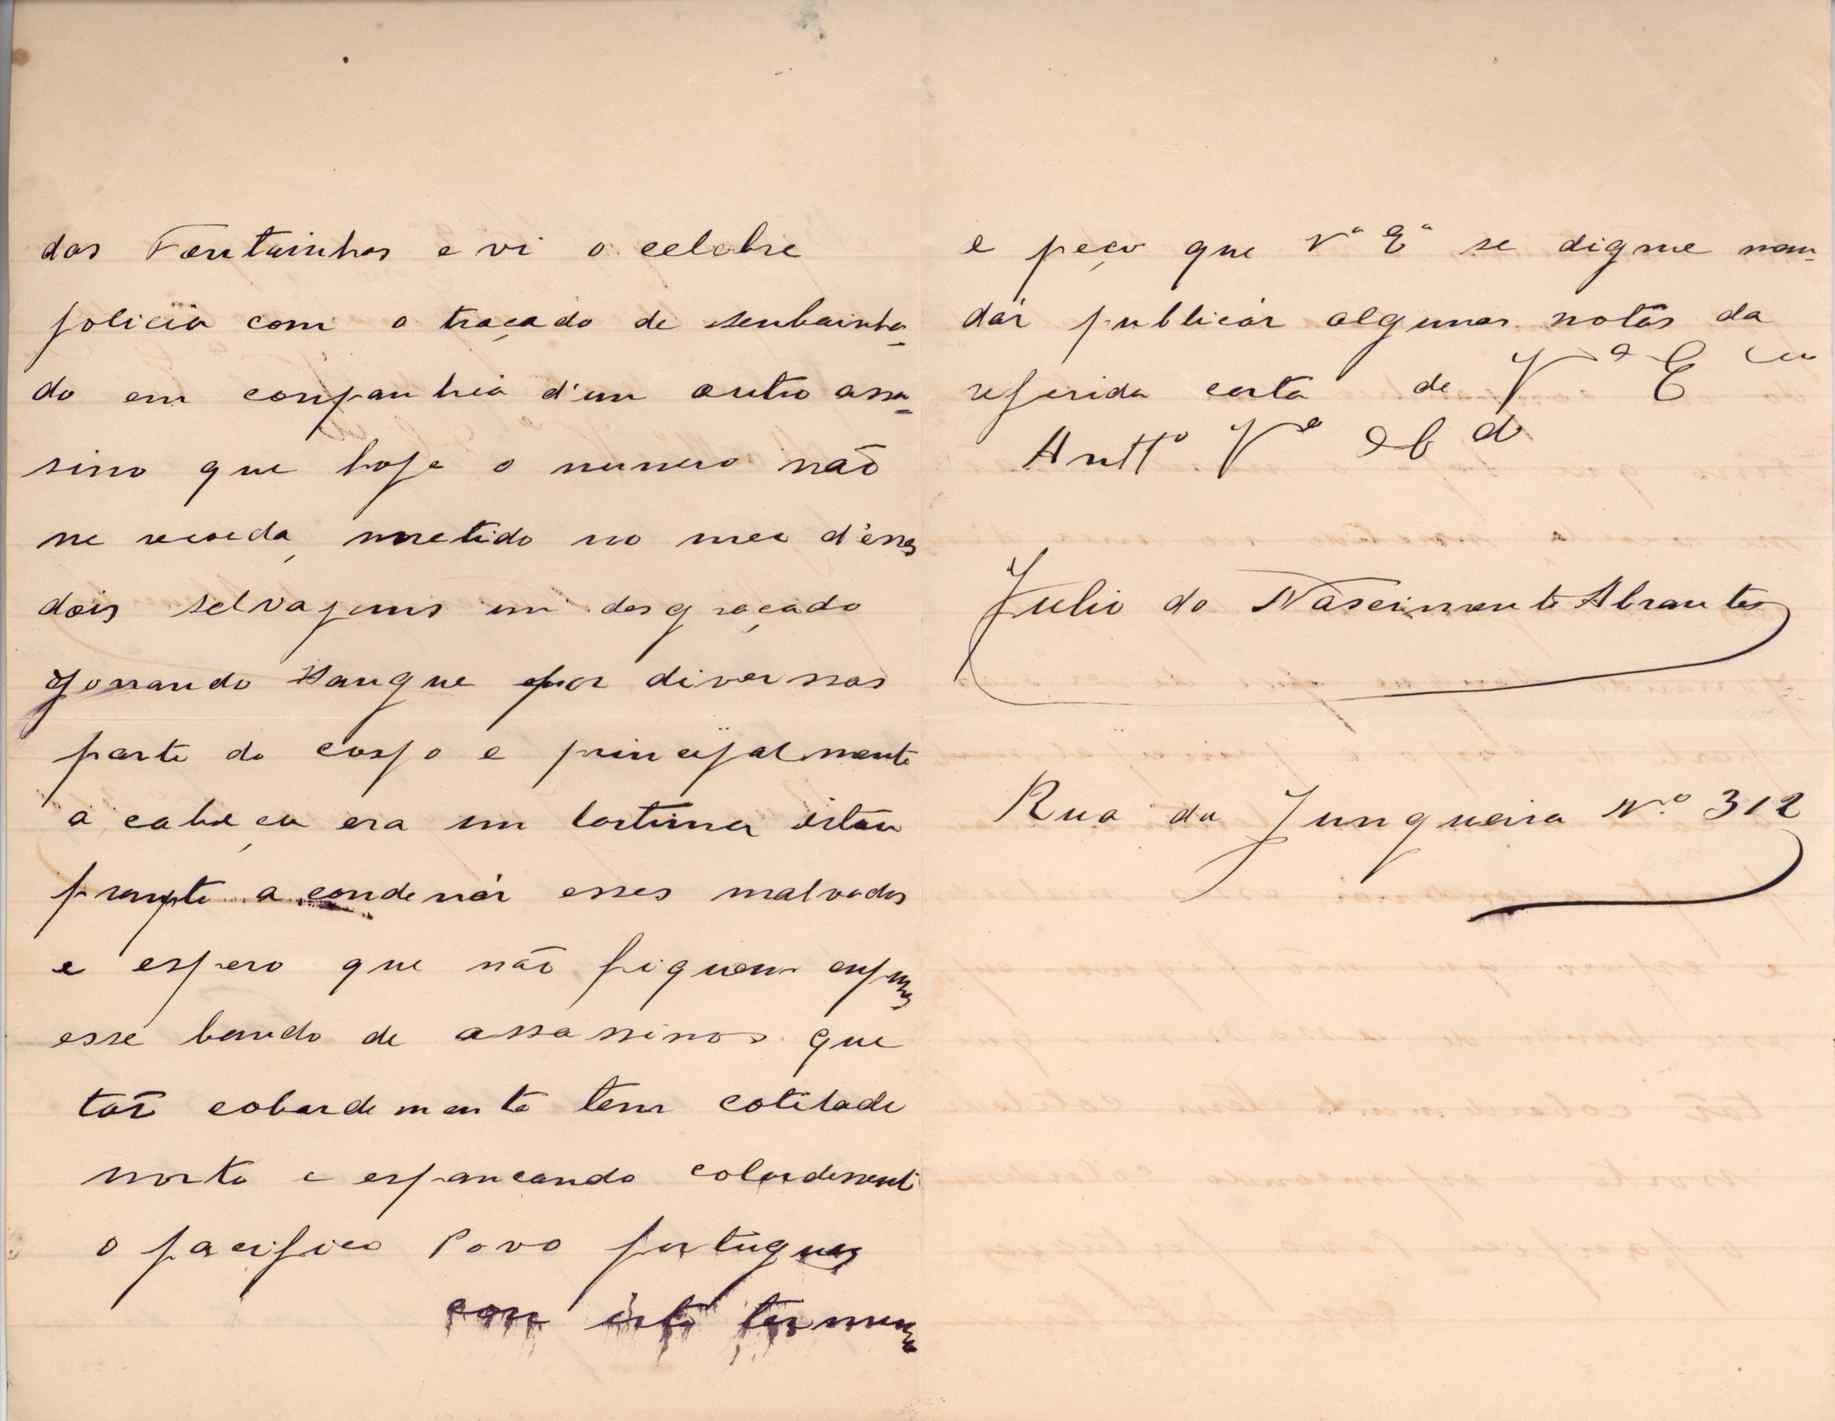 das Fontainhas e vi o celebre
policia com o traçado de senbainha-
do em companhia d'um outro assa-
sino que hoje o numero não
me recorda, metido no meio d'esses
dois selvajens um desgraçado
Jorrando Sangue por diversas
parte do corpo e principalmente
a cabeça era um lastima estou
prompto a condenár esses malvados
e espero que não fiquem empunes
esse bando de assassinos que
tão cobardemente tem
morto e espancando cobardemente
o pacifico Povo portugues
com isto termino
e peço que Vª Eª se digne man-
dár publicár algumas notas da
referida carta de Vª Ecia
Antº Vº Obdº
Julio do Nascimento Abrantes
Rua da Junqueira Nº 312